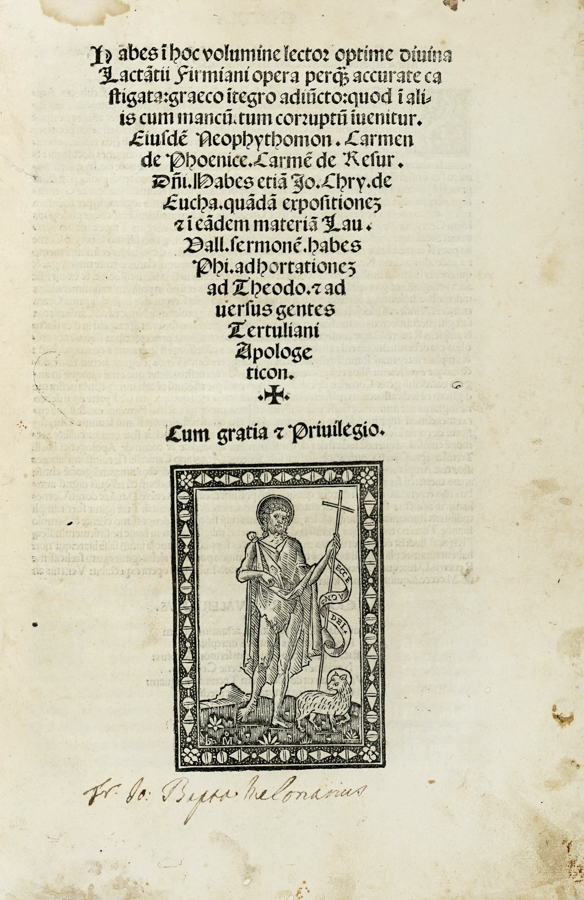 Habes ī hoc volumine lector optime diuina
Lactātii Firmiani opera perq̄ꝫ accurate ca
stigata:graeco ītegro adiūcto:quod ī ali-
is cum mancū.tum corruptū iuenitur.
Eiusdē Neophythomon. Carmen
de Phoenice.Carmē de Resur.
Dñi.Habes etiā Jo.Chry.de
Eucha.quādā expositioneꝫ
⁊ ī eādem materiā Lau.
Vall.sermonē.habes
Phi.adhortationeꝫ
ad Theodo.⁊ ad
uersus gentes
Tertuliani
Apologe
ticon.
.✠.
Cum gratia ⁊ Priuilegio.
ECCE
DEI.
fr. Jo: Bapta Melonarius